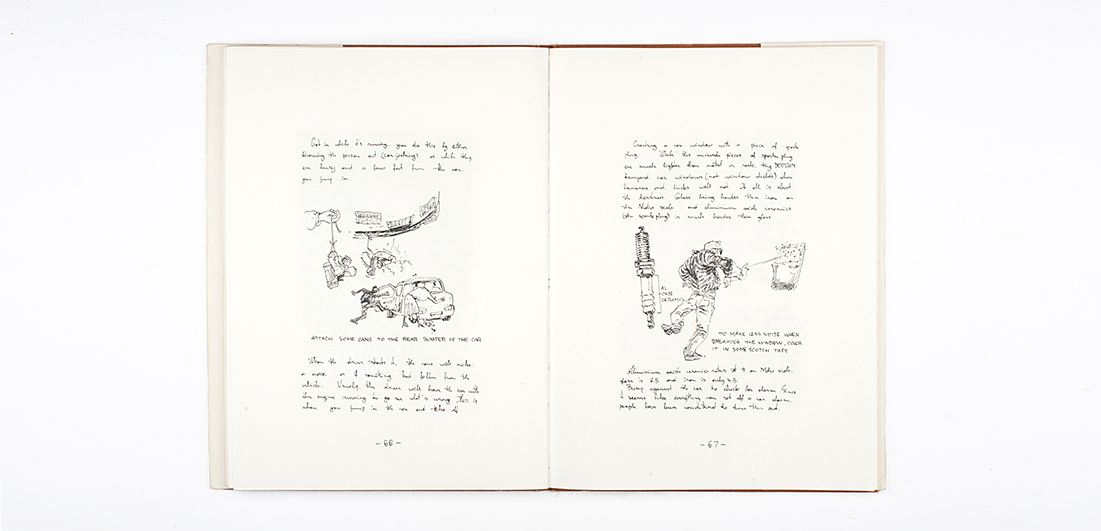 Get in while it's running. you do this by either
throwing the person out (carjacking) or while they
are busy and a few feet from the car
you jump in.
ATTACH SOME CANS TO THE REAR BUMPER OF THE CAR
When the driver starts it, the cans will make
a noise as if something had fallen from the
vehicle. Usually, the driver will leave the car with
the engine running to go see what's wrong. This is
when you jump in the car and take off
- 66 -
Cracking a car window with a piece of spark
plug. While the minuscule pieces of spark plug
are much lighter than metal or rocks, they DESTROY
tempered car windows (not window shields) when
hammers and bricks will not. It all is about
the hardness. Glass being harder than iron on
the Mohs scale and aluminium oxide ceramics
(the spark plug) is much harder than glass
AL
OXIDE
CERAMICS
TO MAKE LESS NOISE WHEN
BREAKING THE WINDOW, COVER
IT IN SOME SCOTCH TAPE
Aluminium oxide ceramics rates at 9 on Mohs scale.
glass is 6.5 and iron is only 4.5
Bump against the car to check for alarm. Since
it seems like everything can set off a car alarm,
people have been conditioned to tune this out.
- 67 -